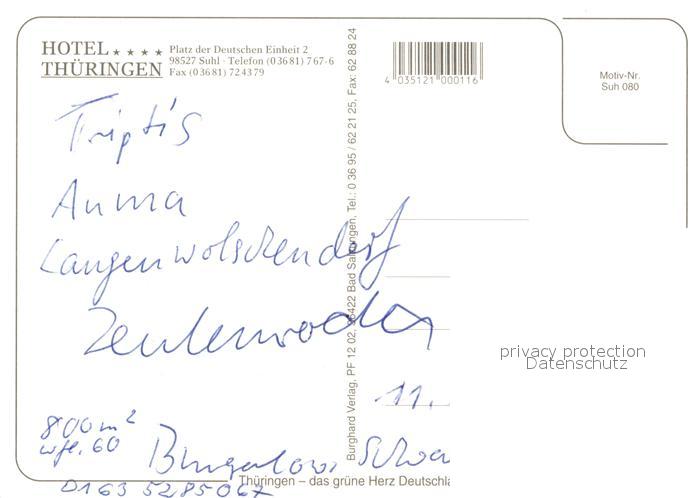 HOTEL ★★★★
THÜRINGEN
Platz der Deutschen Einheit 2
98527 Suhl · Telefon (03681) 767-6
Fax (03681) 724379
4 035121 000116
Motiv-Nr.
Suh 080
Triptis
Auma
Langenwolschendorf
Zeulenroda
11.
800 m²
wfl. 60
Bungalow
0163 5285067
Burghard Verlag, PF 12 02, 36422 Bad Salzungen, Tel.: 0 36 95 / 62 21 25, Fax: 62 88 24
privacy protection
Datenschutz
Thüringen – das grüne Herz Deutschla